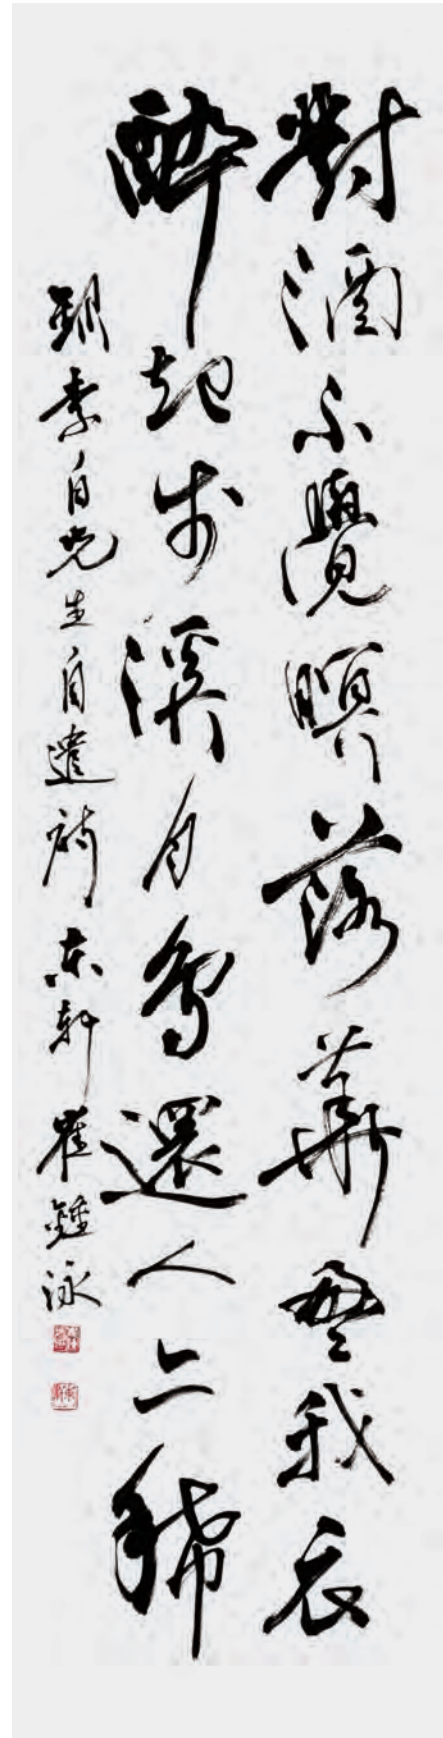 對酒不覺暝落華盈我衣
醉起步溪月鳥還人亦稀
錄李白先生自遣詩東軒崔鍾泳